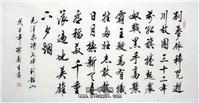 别梦依稀咒逝
川故园三十二年
前红旗卷起农
奴戟黑手高悬
霸主鞭为有牺
牲多壮志敢教
日月换新天喜
看稻菽千重浪
遍地英雄
下夕烟
毛泽东诗七律到韶山